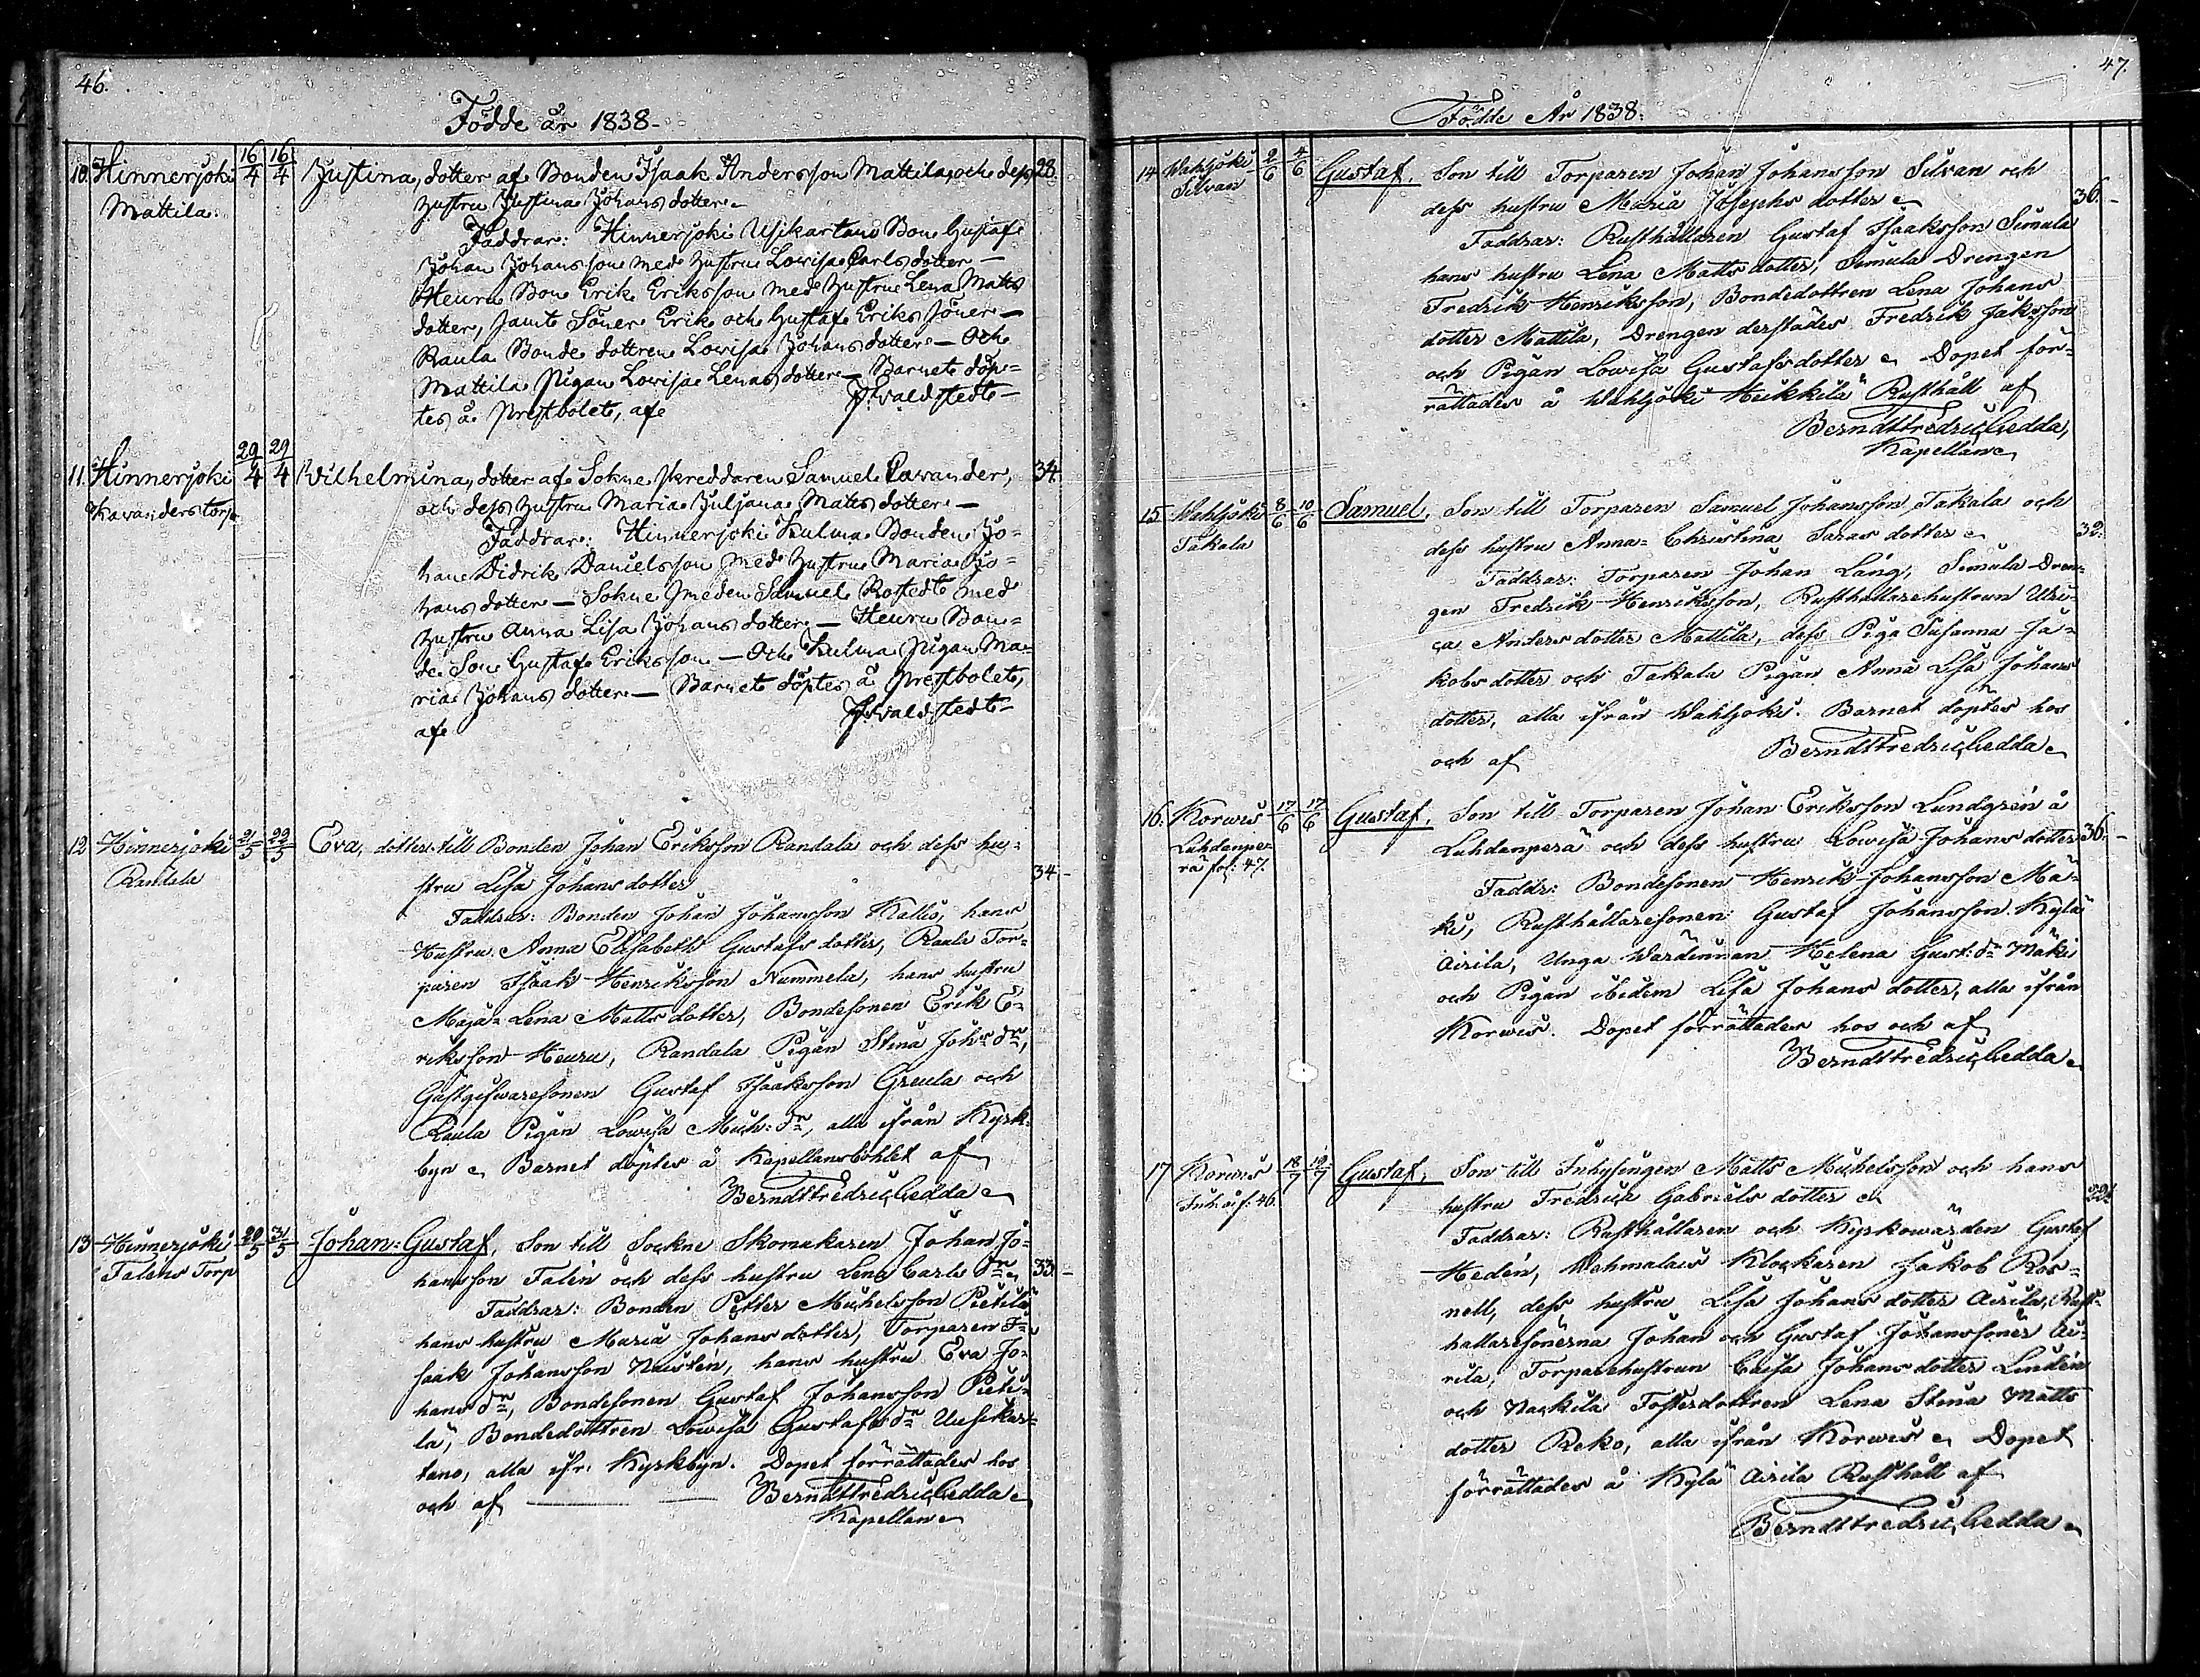 46.
Födde år 1838-
10. Hinnerjoki 16/4 16/4 Justina, dotter af Bonden Isaak Andersson Mattila, och dess 28.
Mattila. hustru Justina Johans dotter.
Faddrar: Hinnerjoki Usikartano Bon: Gustaf
Johan Johansson med hustru Lovisa Carls dotter —
Heuru Bon: Erik Eriksson med hustru Lena Matts
dotter, samt Söner Erik och Gustaf Eriks Söner —
Raula Bonde dottren Lovisa Johans dotter — Och
Mattila Pigan Lovisa Lenas dotter — Barnet döp=
tes å Prestbolet, af
11. Hinnerjoki 29/4 29/4 Wilhelmina, dotter af Sokne Skreddaren Samuel Cavander, 34.
Kavanders torp och dess hustru Maria Juljana Matts dotter —
Faddrar: Hinnerjoki Kulma Bonden Jo=
han Didrik Danielsson med hustru Maria Jo=
hans dotter — Sokne Smeden Samuel Rostedt med
hustru Anna Lisa Johans dotter — Heuru Bon=
de Son Gustaf Eriksson — Och Kulma Pigan Ma=
ria Johans dotter — Barnet döptes å Prestbolet,
af
12 Hinnerjoki 21/5 22/5 Eva, dotter till Bonden Johan Eriksson Randala och dess hu=
Randala stru Lisa Johans dotter 34-
Faddrar: Bonden Johan Johansson Kallio, hans
Hustru Anna Elisabeth Gustafs dotter, Raula Tor=
paren Isaak Henriksson Nummela, hans hustru
Maja=Lena Matts dotter, Bondesonen Erik E=
riksson Heuru, Randala Pigan Stina Johs dr,
Gästgifvaresonen Gustaf Isaaksson Greula och
Raula Pigan Lovisa Mich: dr, alla ifrån Kyrk=
byn. Barnet döptes å Kapellansbohlet af
Berndt Fredric Gedda
13 Hinnerjoki 29/5 31/5 Johan=Gustaf, Son till Sockne Skomakaren Johan Jo=
Talens Torp hansson Talén och dess hustru Lena Carls dr. 33.-
Faddrar: Bonden Petter Michelsson Pietilä,
hans hustru Maria Johans dotter, Torparen I=
saak Johansson Nustén, hans hustru Eva Jo=
hans dr, Bondesonen Gustaf Johansson Pieti=
lä, Bondedottren Lovisa Gustafs dr Uusikar=
tano, alla ifr. Kyrkbyn. Dopet förrättades hos
och af Berndt Fredric Gedda
Kapellan
47.
Födde År 1838.
14 Wahljoki 2/6 4/6 Gustaf, Son till Torparen Johan Johansson Silvan och
Silvan dess hustru Maria Josephs dotter 36.-
Faddrar: Rusthållaren Gustaf Isaaksson Simula
hans hustru Lena Matts dotter, Simula Drengen
Fredrik Henriksson, Bondedottren Lena Johans
dotter Mattila, Drengen derstädes Fredrik Jaksson
och Pigan Lowisa Gustafsdotter. Dopet för=
rättades å Wahljoki Heikkilä Rusthåll af
Berndt Fredric Gedda,
Kapellan
15 Wahljoki 8/6 10/6 Samuel, Son till Torparen Samuel Johansson Takala och
Takala dess hustru Anna=Christina Saras dotter 32.
Faddrar: Torparen Johan Lång, Simula Dren=
gen Fredrik Henriksson, Rusthållarehustrun Ulri=
ca Anders dotter Mattila, dess Piga Susanna Ja=
kobs dotter och Takala Pigan Anna Lisa Johans
dotter, alla ifrån Wahljoki. Barnet döptes hos
och af Berndt Fredric Gedda
16. Korwis 17/6 17/6 Gustaf, Son till Torparen Johan Eriksson Lundgrén å
Luhdanpe= Luhdanperä och dess hustru Lowisa Johans dotter 36.-
rä fol: 47.
Faddr: Bondesonen Henrik Johansson Mä=
ki, Rusthållaresonen Gustaf Johansson Kylä
Airila, Unga Wärdinnan Helena Gust: dr Mäki
och Pigan ibidem Lisa Johans dotter, alla ifrån
Korwis. Dopet förrättades hos och af
Berndt Fredric Gedda
17 Korwis 18/7 19/7 Gustaf, Son till Inhysingen Matts Michelsson och hans
Inh: å f: 46. hustru Fredrica Gabriels dotter
Faddrar: Rusthållaren och Kyrkowärden Gustaf
Hedén, Wehmalais Klockaren Jakob Ros=
nell, dess hustru Lisa Johans dotter Airila, Rust=
hållaresönerna Johan och Gustaf Johanssöner Ai=
rila, Torparehustrun Caisa Johans dotter Lindén
och Nackila Fosterdottren Lena Stina Matts
dotter Reko, alla ifrån Korwis. Dopet
förrättades å Kylä Airila Rusthåll af
Berndt Fredric Gedda